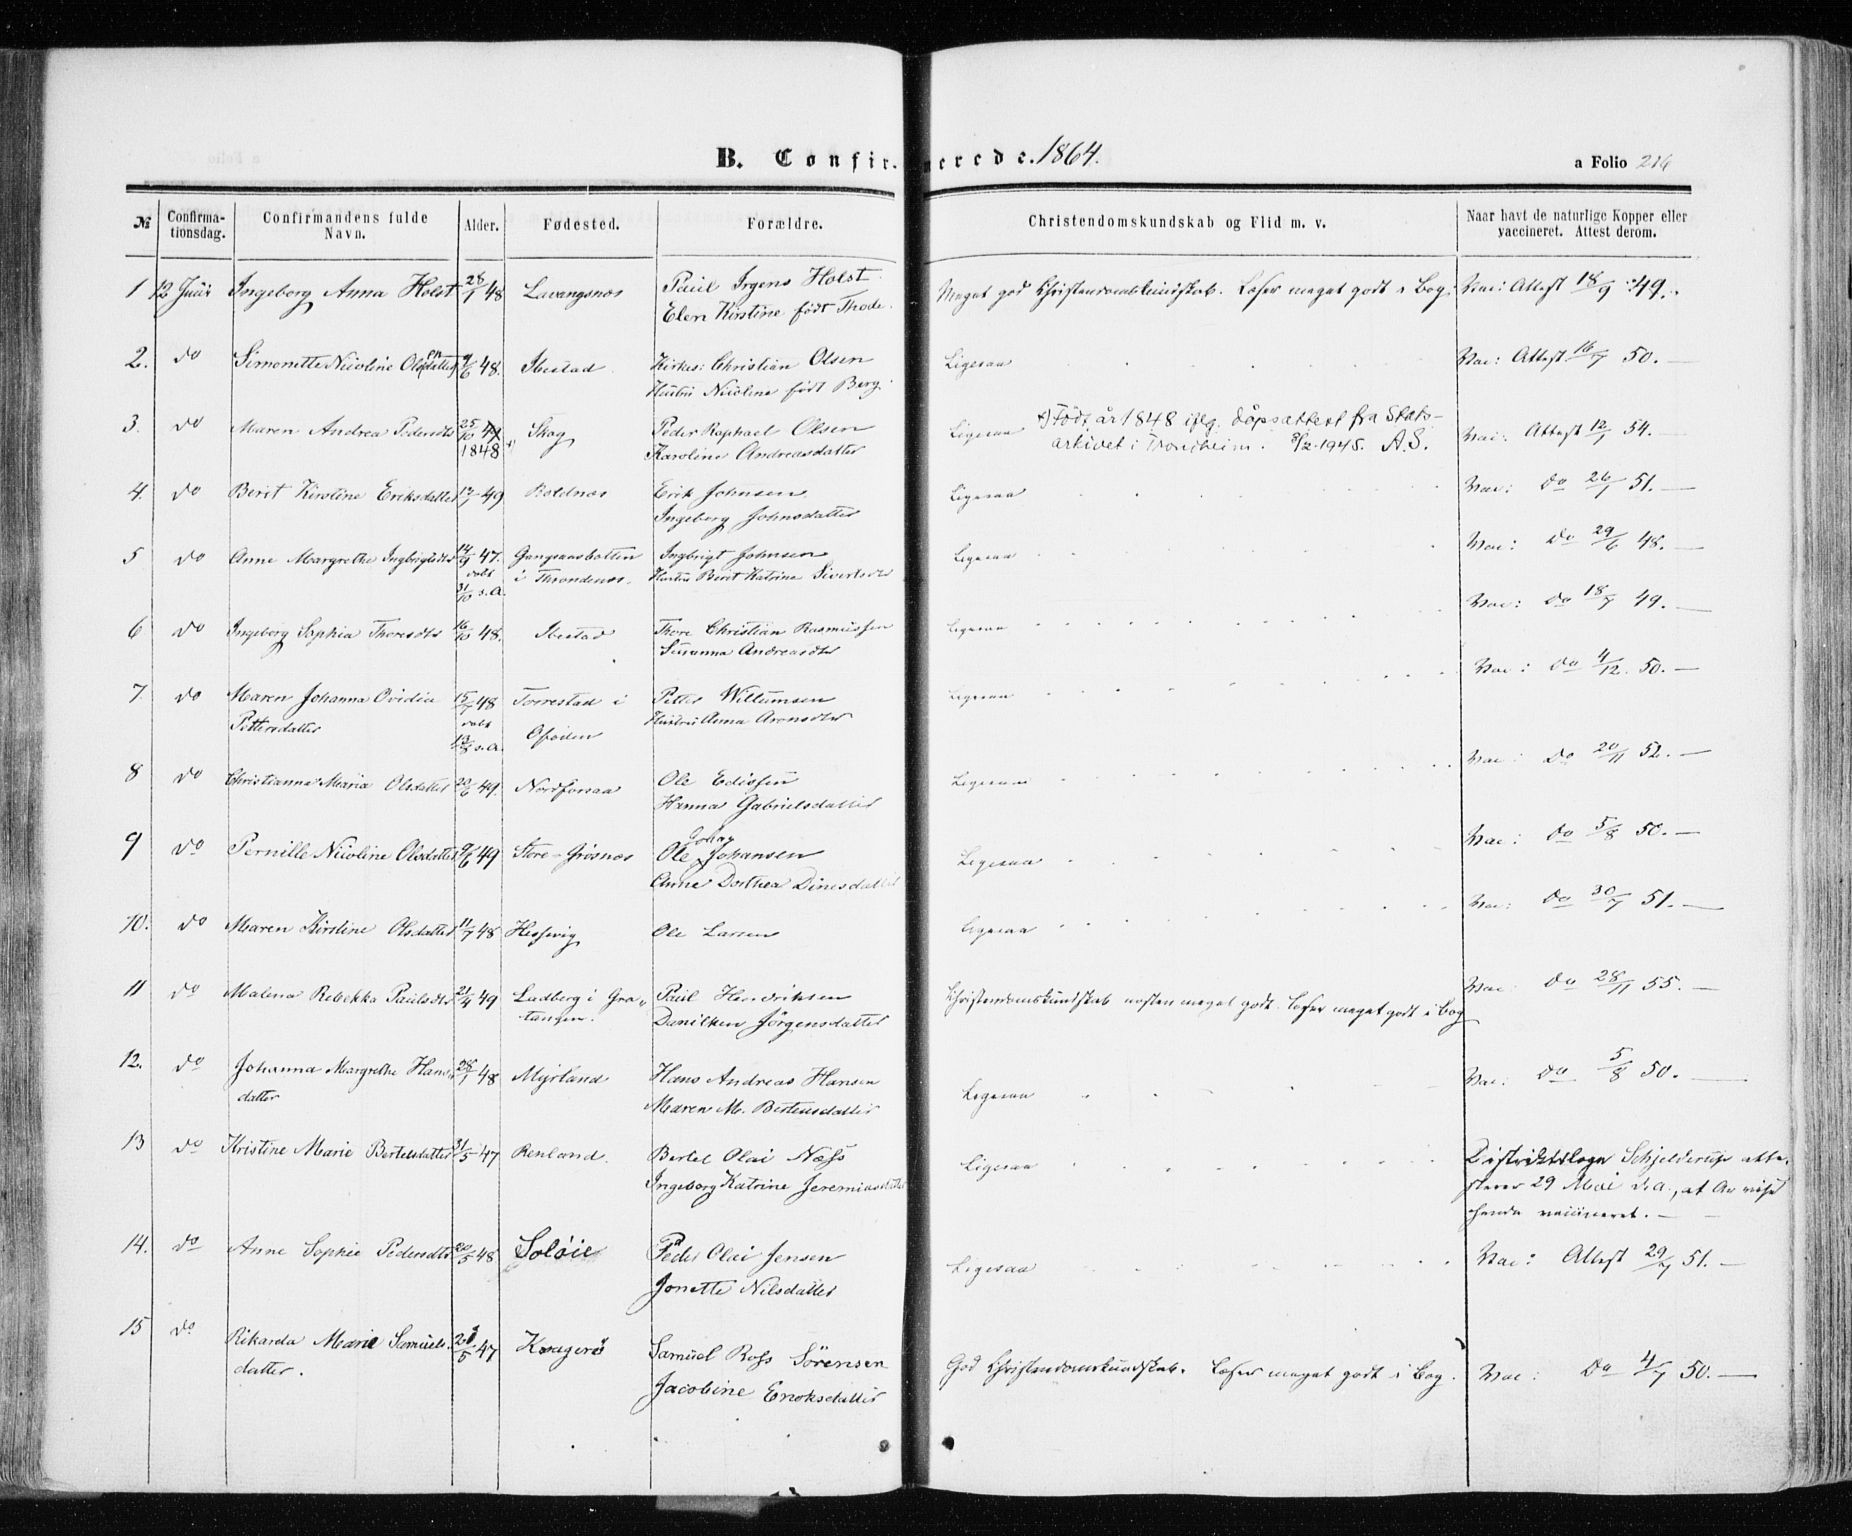 B. Confirmerede. 1864.
a Folio 216
№ Confirmationsdag. Confirmandens fulde Navn. Alder. Fødested. Forældre. Christendomskundskab og Flid m. v. Naar havt de naturlige Kopper eller vaccineret. Attest derom.
1 12 Juni Ingeborg Anna Holst 28/1 48 Lavangsnæs Paul Irgens Holst Meget god Christendomskundskab. Læser meget godt i Bog. Vac: Attest 18/9 49.
Elen Kirstine født Thode
2. do Simonette Nicoline Olsdatter 48. Ibestad Kirkes: Christian Olsen Ligesaa Vac: Attest 16/7 50. —
Hustru Nicoline født Berg
3. do Maren Andrea Pedersdtr 25/10 49 Skog Peder Raphael Olsen Ligesaa x) Født år 1848 iflg. dåpsattest fra Stats- Vac: Attest 12/1 54. —
1848 x) Karoline Andreasdatter arkivet i Trondheim. 8/2-1945. A.S.
4. do Berit Kirstine Eriksdatter 49 Boldnæs Erik Johnsen Ligesaa Vac: Do 26/1 51. —
Ingeborg Johnsdatter
5 do Anne Margrethe Ingbrigtsdtr 14/9 47. Gangsaasbotten Ingbrigt Johnsen Ligesaa Vac: Do 29/6 48. —
døbt i Throndenæs. Hustru Berit Katrine Sivertsdtr
31/10 s.A.
6 do Ingeborg Sophia Thoresdtr 16/10 48. Ibestad Thore Christian Rasmussen Ligesaa Vac: Do 18/7 49. —
Susanna Andreasdtr
7. do Maren Johanna Ovidia 15/7 48 Torrestad i Petter Willumsen Ligesaa Vac: Do 4/12. 50. —
Pettersdatter døbt Ofoden Hustru Anna Aronsdtr
13/8 s.A.
8 do Christianna Maria Olsdatter 20/6 49. Nordforsaa Ole Edissen Ligesaa Vac: Do 20/11 52. —
Hanna Gabrielsdatter
9 do Pernille Nicoline Olsdatter 9/6 49 Store-Grøsnæs Ole Johan Johansen Ligesaa Vac: Do 5/8 50. —
Anne Dorthea Dinesdatter
10. do Maren Kirstine Olsdatter 11/7 48 Hessevig Ole Larsen Ligesaa Vac: Do 30/7 51. —
11 do Malena Rebekka Paulsdtr 21/4 49 Ladberg i Gra- Paul Hendriksen Christendomskundskab næsten meget godt. Læser meget godt i Bog Vac: Do 28/11 55. —
tangen. Danilken Jörgensdatter
12. do Johanna Margrethe Hans- 28/1 48 Myrland Hans Andreas Hansen Ligesaa Vac: Do 5/8 50. —
datter Maren M. Bertensdatter
13 do Kristine Marie Bertelsdatter 31/5 47 Renland. Bertel Olai Næss Ligesaa Distriktslæge Schjelderup atte-
Ingeborg Katrine Jeremiasdatter sterer 29 Mai d.A., at Ar vise
hende vaccineret. —
14. do Anne Sophie Pedersdtr 48 Soløie Peder Olai Jensen Ligesaa Vac: Attest 29/7 51. —
Jonette Nilsdatter
15 do Rikarda Marie Samuels- 47 Kragerø Samuel Ross Sörensen God Christendomskundskab. Læser meget godt i Bog. Vac: Do 4/7 50. —
datter. Jacobine Enoksdatter